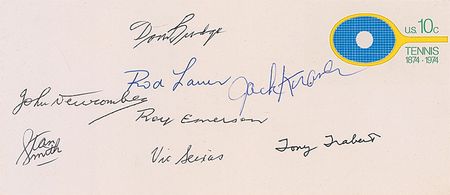 Don Budge
U.S. 10c
TENNIS
1874-1974
Rod Laver
Jack Kramer
John Newcombe
Roy Emerson
Stan
Smith
Vic Seixas
Tony Trabert